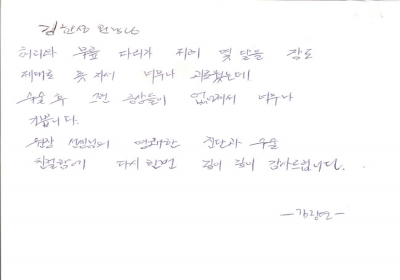 김한섭 원장님
허리와 무릎 다리가 저려 몇 달을 잠도
제대로 못 자서 너무나 괴로웠는데
수술 후 그런 증상들이 없어져서 너무나
기쁩니다.
원장 선생님의 명쾌한 진단과 수술
친절함에 다시 한번 깊이 깊이 감사드립니다.
-김광연-